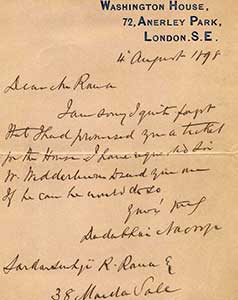 WASHINGTON HOUSE,
72, ANERLEY PARK,
LONDON. S.E.
4 August 1898
Dear Mr Rana
I am sorry I quite forgot
that I had promised you a ticket
for the House. I have
W. Wedderburn to send you one
If he can he would do so
Yours truly
Dadabhai Naoroji
Sardarsinhji R. Rana
38 Maida Vale